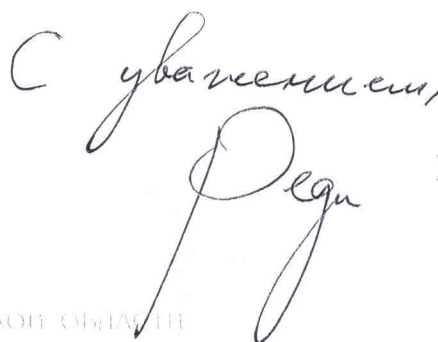 С уважением,
Реди
КОЙ ОБЛАСТИ